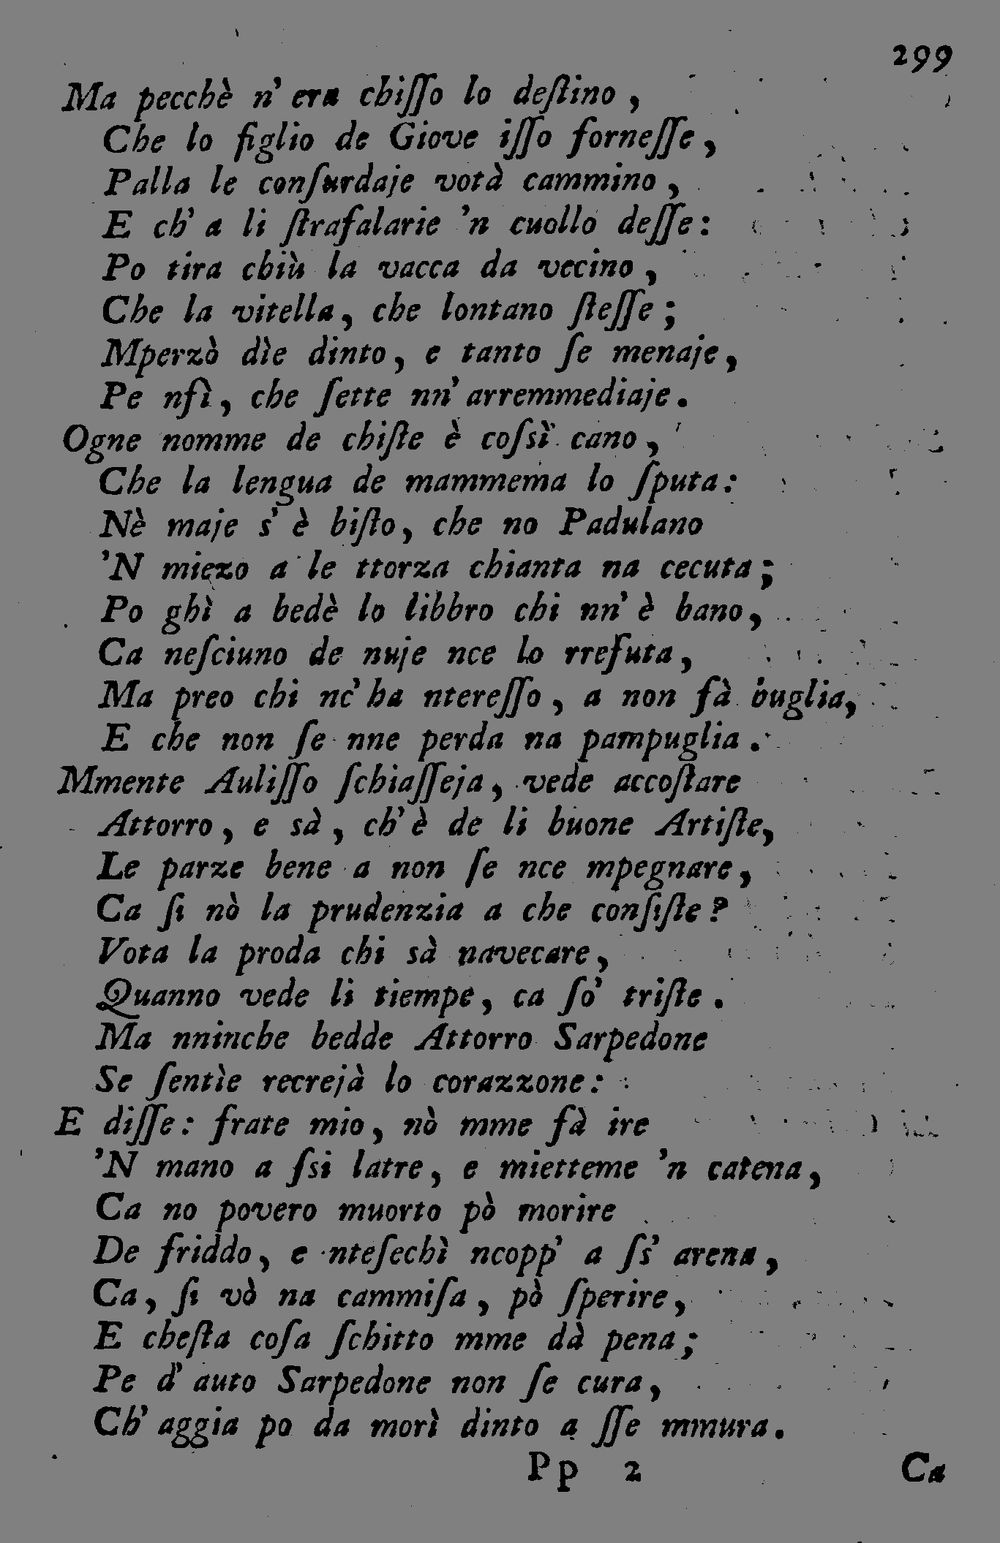 299
Ma pecchè n' era chiſſo lo deſtino ,
Che lo figlio de Giove iſſo forneſſe ,
Palla le conſurdaje votà cammino ,
E ch' a li ſtrafalarie 'n cuollo deſſe :
Po tira chiù la vacca da vecino ,
Che la vitella , che lontano ſteſſe ;
Mperzò dìe dinto , e tanto ſe menaje ,
Pe nſì , che ſette nn' arremmediaje .
Ogne nomme de chiſte è coſsì cano ,
Che la lengua de mammema lo ſputa :
Nè maje s' è biſto , che no Padulano
'N miezo a le ttorza chianta na cecuta ;
Po ghì a bedè lo libbro chi nn' è bano ,
Ca neſciuno de nuje nce lo rrefuta ,
Ma preo chi nc' ha ntereſſo , a non fà buglia ,
E che non ſe nne perda na pampuglia .
Mmente Auliſſo ſchiaſſeja , vede accoſtare
Attorro , e sà , ch' è de li buone Artiſte ,
Le parze bene a non ſe nce mpegnare ,
Ca ſi nò la prudenzia a che conſiſte ?
Vota la proda chi sà navecare ,
Quanno vede li tiempe , ca ſo' triſte .
Ma nninche bedde Attorro Sarpedone
Se ſentìe recrejà lo corazzone :
E diſſe : frate mio , nò mme fà ire
'N mano a ſsi latre , e mietteme 'n catena ,
Ca no povero muorto pò morire
De friddo , e nteſechì ncopp' a ſs' arena ,
Ca , ſi vò na cammiſa , pò ſperire ,
E cheſta coſa ſchitto mme dà pena ;
Pe d' auto Sarpedone non ſe cura ,
Ch' aggia po da morì dinto a ſſe mmura .
Pp 2 Ca